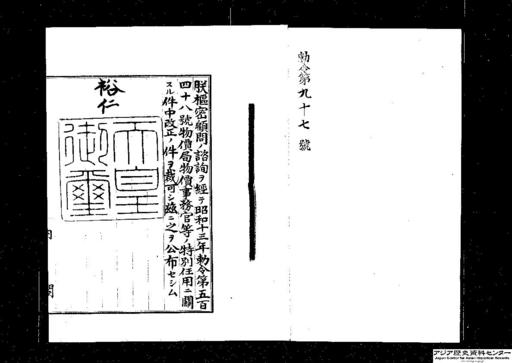 勅令第九十七號
朕樞密顧問ノ諮詢ヲ經テ昭和十三年勅令第五百
四十八號物價局物價事務官等ノ特別任用ニ關
スル件中改正ノ件ヲ裁可シ茲ニ之ヲ公布セシム
裕仁
天皇
御璽
内閣
アジア歴史資料センター
Japan Center for Asian Historical Records